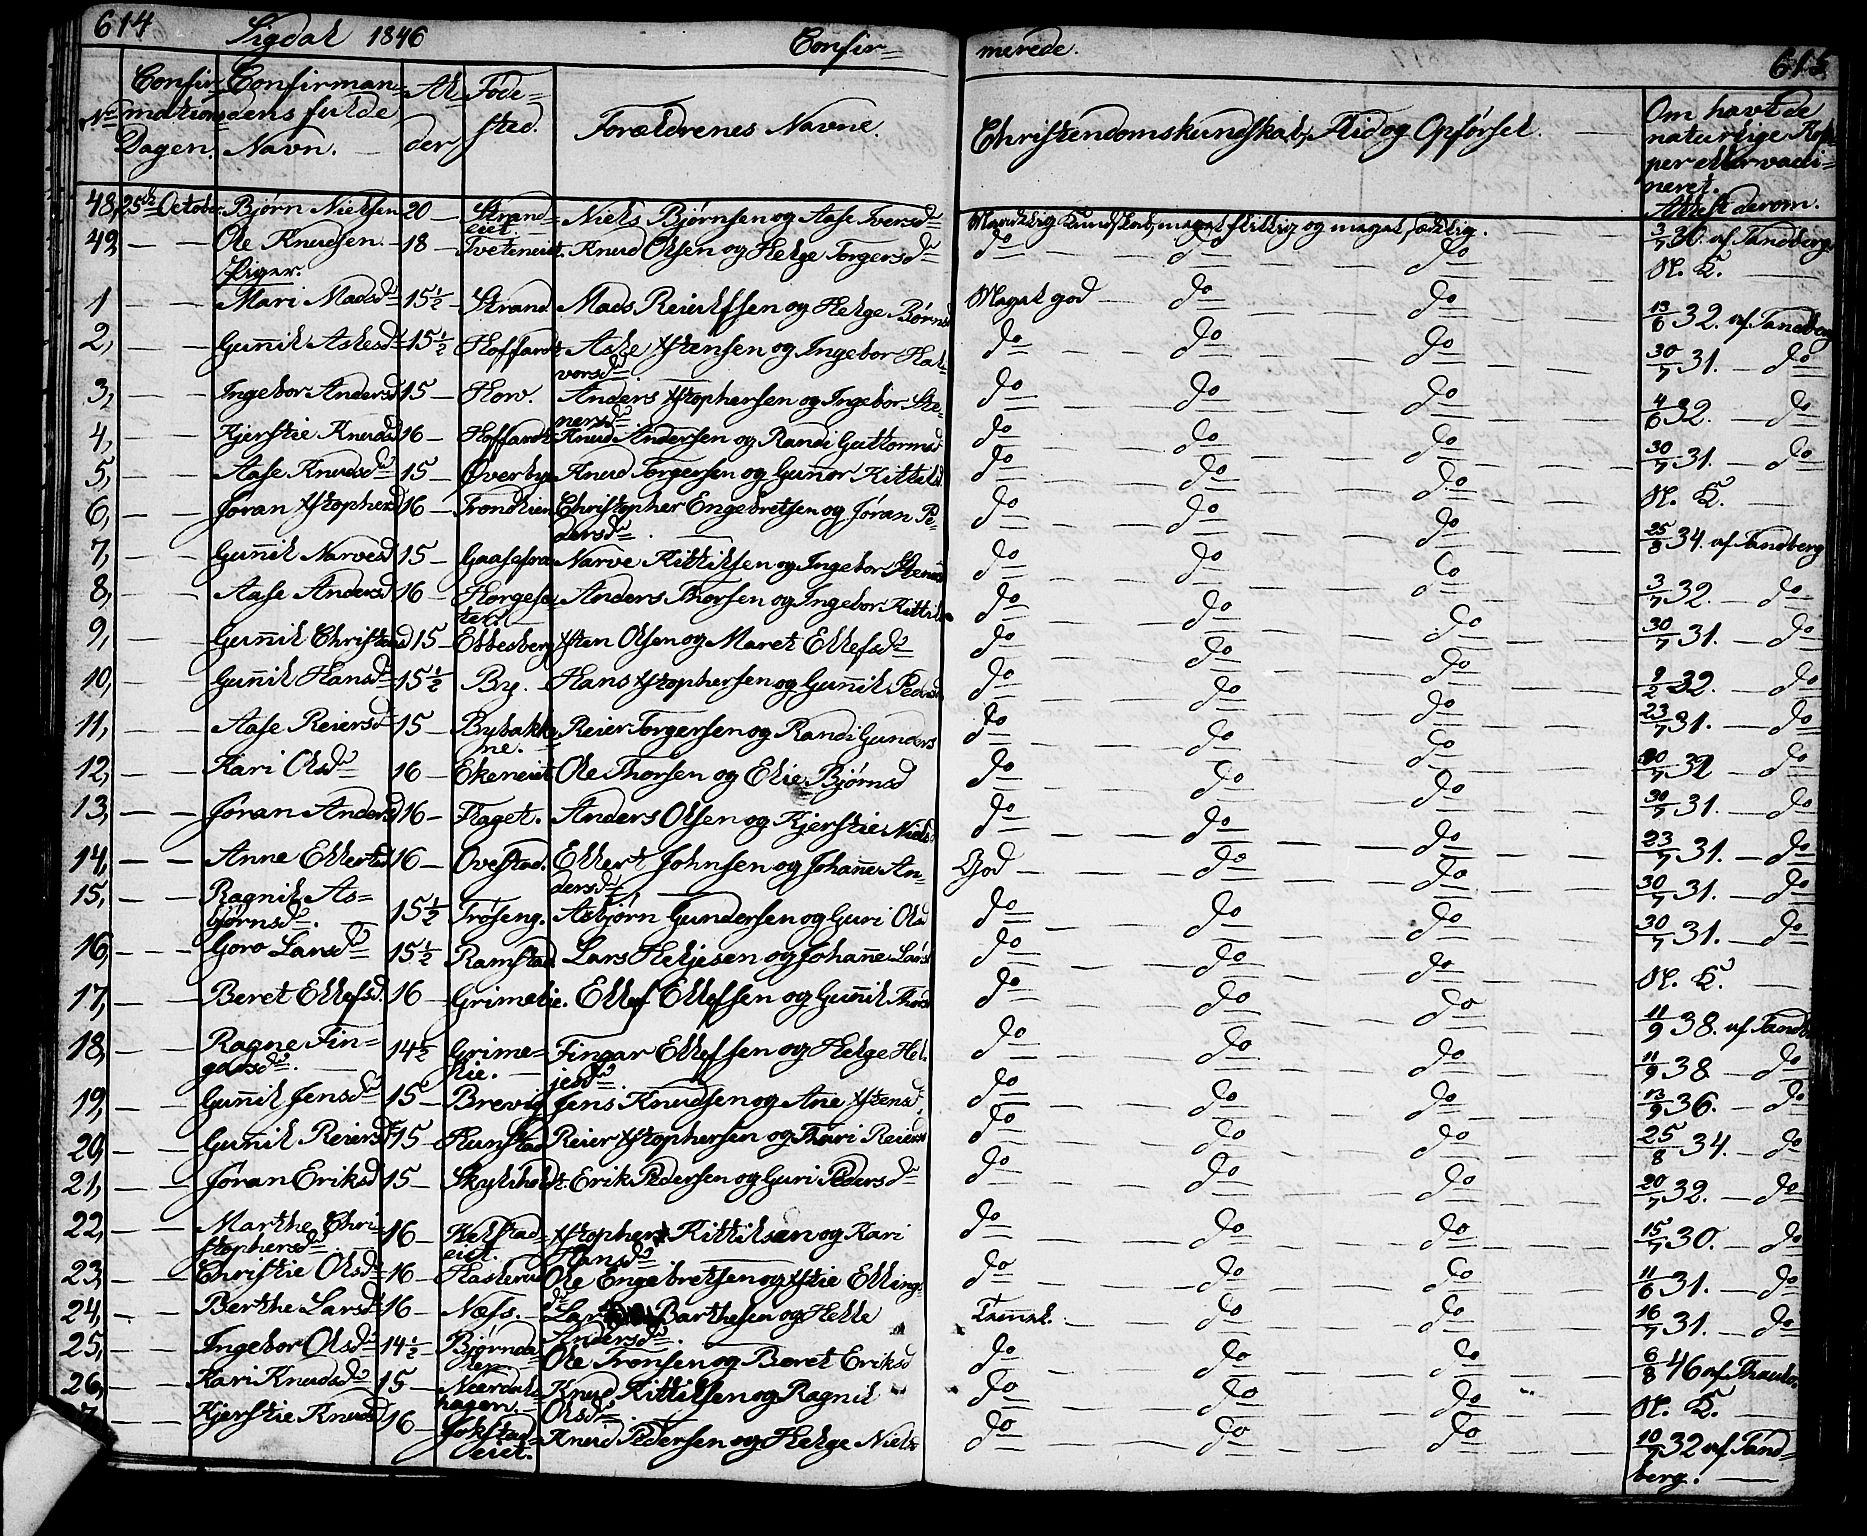 614 Sigdal 1846 Confir= merede. 615
No Confirmations Dagen. Confirmandens fulde Navn. Alder Fødested. Forældrenes Navne. Christendomskundskab, Flid og Opførsel. Om havt de naturlige Kopper eller vaccineret. Attest derom.
48, 25de October. Bjørn Nielsen 20 — Strandeiet. Niels Bjørnsen og Aase Iversd. Maadelig Kundskab, meget flittig og meget sædelig. 3/7 30. af Tandberg
49, — — Ole Knudsen. — 18 — Tveteneiet. Knud Olsen og Helge Torgersd. do — do — do N. K.
Piger.
1 — — Mari Madsd. 15½ — Strand Mads Reiersen og Helge Børnsd Meget god — do — do 13/6 32. af Tandberg
2, — — Gunnil Aslesd. 15½ Hoffardt Asle Xstensen og Ingebor Halvorsd. do — do — do 30/7 31. — do
3, — — Ingebor Andersd 15 — How. Anders Xstophersen og Ingebor Stenersd. do — do — do 4/6 32. — do
4, — — Kjerstie Knudsd 16 — Hoffardt Knud Andersen og Randi Guttormsd do — do — do 30/7 31. — do
5, — — Aase Knudsd. 15 — Overbye Knud Torgersen og Gunnor Kittilsd do — do — do N. K. —
6, — — Jøran Xstophersd 16 — Trondlien Christopher Engebretsen og Jøran Pedersd. do — do — do 25/8 34. af Tandberg
7, — — Gunnil Narvesd 15 — Narve Kittilsen og Ingebor do — do — do 3/7 32. — do
8, — — Aase Andersd 16 — Anders Thorsen og Ingebor Kittils do — do — do 30/7 31. — do
9, — — Gunnil Christensd 15 — Ebbesberg Xsten Olsen og Maret Ellefsd. do — do — do 9/2 32. — do
10, — — Gunnil Hansd. 15½ By. Hans Xstophersen og Gunnil Pedersd do — do — do 23/7 31. — do
11, — — Aase Reiersd 15 — Bybakkene. Reier Torgersen og Randi Gunders do — do — do 20/7 32 — do
12, — — Kari Olsd. 16 — Ekeneiet Ole Thorsen og Elie Bjørnsd do — do — do 30/7 31. — do
13, — — Jøran Andersd 16 — Flaget. Anders Olsen og Kjerstie Niels do — do — do 23/7 31. — do
14, — — Anne Ellertsd 16 — Ovestad. Ellert Johnsen og Johanne Andersd. God — do — do 30/7 31. — do
15, — — Ragnil Asbjørnsd. 15½ Trøseng. Asbjørn Gundersen og Guri Olsd do — do — do 30/7 31. — do
16, — — Goro Larsd. 15½ Ramstad Lars Heljesen og Johanne Lars do — do — do N. K. —
17, — — Beret Ellefsd. 16 — Grimelie. Ellef Ellefsen og Gunnil Thors do — do — do 11/9 38. af Tandb
18, — — Ragne Fingalsd. 14½ Grimelie. Fingar Ellefsen og Helge Heljesd. do — do — do 11/9 38 — do
19, — — Gunnil Jensd. 15 — Brevig Jens Knudsen og Ane Xstensd, do — do — do 13/9 36. — do
20, — — Gunil Reiersd. 15 Hunstad Reier Xstophersen og Kari Reiers do — do — do 25/8 34. — do
21, — — Jøran Eriksd 15 — Skylsholdt. Erik Pedersen og Guri Pedersd. do — do — do 20/7 32. — do
22, — — Marthe Christophersd. 16 — Kolstadeiet. Xstopher Kittilsen og Kari Hansd. do — do — do 15/7 30. — do
23, — — Christie Olsd. 16 — Ole Engebretsen og Xstie Ellingsd. do — do — do 11/6 31. — do
24, — — Berthe Larsd 16 — Næss. Lars Barthesen og Helle Andersd. Taaml. — do — do 16/7 31. — do
25, — — Ingebor Olsd. 14½ Ole Tronsen og Beret Eriksd do — do — do 6/8 46 af
26, — — Kari Knudsd. 15 — Knud Kittilsen og Ragnil Olsd. do — do — do N. K. —
7, — — Kjerstie Knudsd 16 — Jokstadeiet. Knud Pedersen og Helge Niels do — do — do 10/7 32 af Tandberg. —